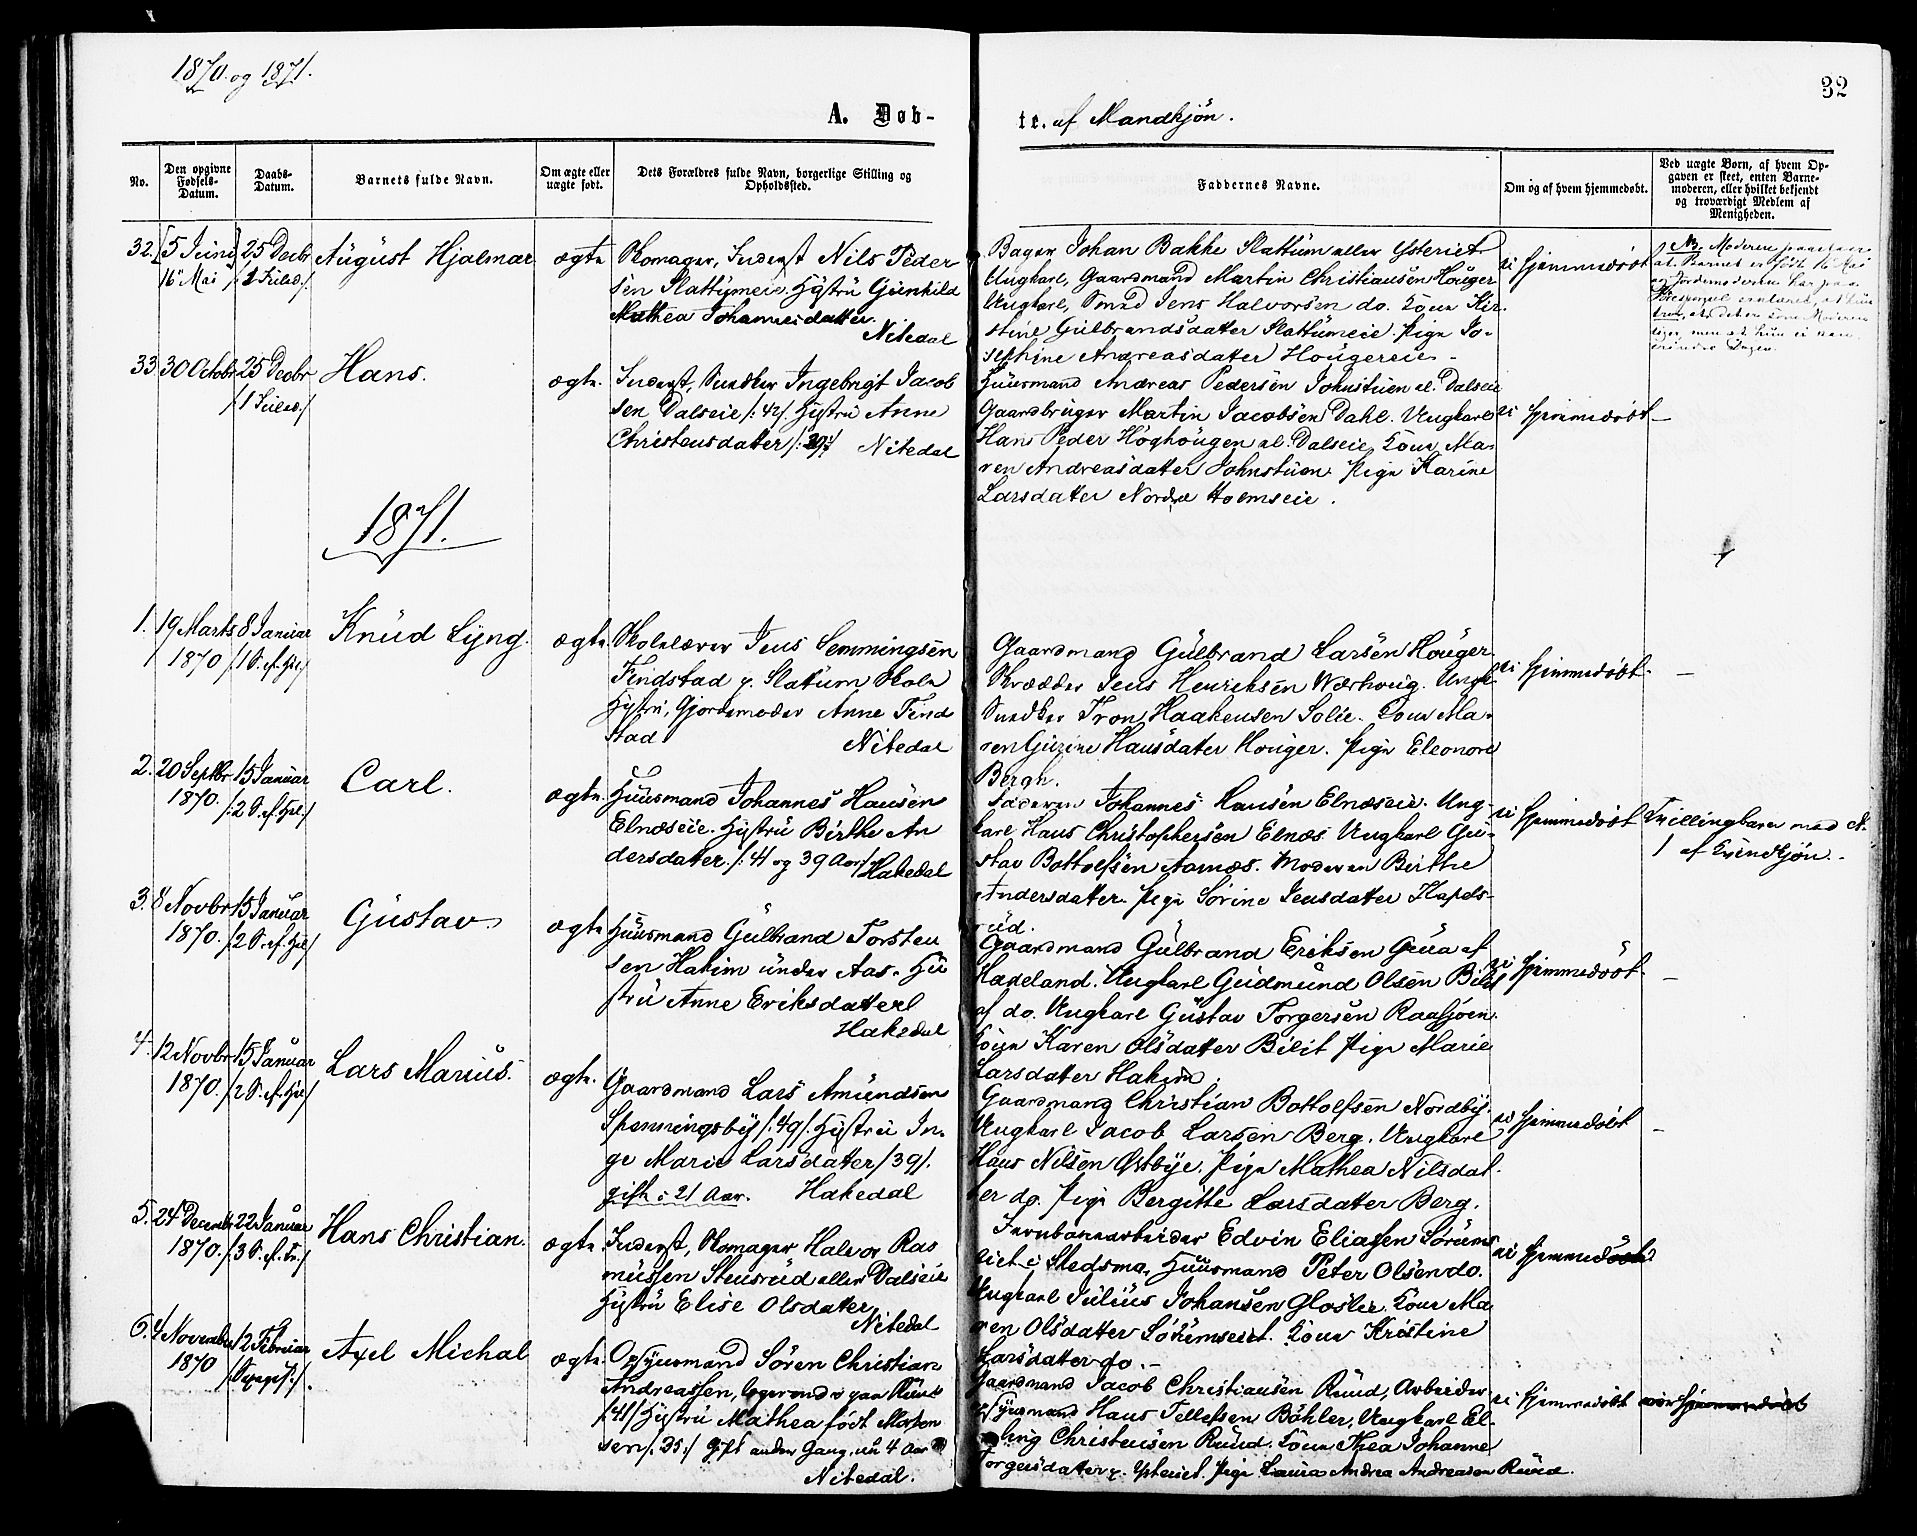 1870 og 1871.
32
A. Døb-
te. af Mandkjön.
No.
Den opgivne
Fødsels-
Datum.
Daabs-
Datum.
Barnets fulde Navn.
Om ægte eller
uægte født.
Dets Forældres fulde Navn, borgerlige Stilling og
Opholdssted.
Faddernes Navne.
Om og af hvem hjemmedøbt.
Ved uægte Børn, af hvem Op-
gaven er skeet, enten Barne-
moderen, eller hvilket bekjendt
og troværdigt Medlem af
Menigheden.
32. [5 Juni]
16 Mai
25 Decbr
August Hjalmar
ægte
Skomager, Inderst Nils Peder
sen Slattumeie. Hustru Gunhild
Mathea Johannesdatter
Nitedal
Bager Johan Bakke Slattum eller Ysteriet
Ungkarl, Gaardmand Martin Christiansen Houger
Ungkarl, Smed Jens Halvorsen do. Kone Kir-
stine Gulbrandsdatter Slattumeie. Pige Jo-
sephine Andreasdatter Hougereie
ei hjemmedøbt
NB. Moderen
at Barnet er født 16 Mai
33
30 Octobr
25 Decbr
/1 Juled./
Hans.
ægte.
Inderst, Snedker Ingebrigt Jacob
sen Dalseie /:42/. Hustru Anne
Christensdatter
Nitedal
Huusmand Andreas Pedersen Johnstuen el. Dalseie
Gaardbruger Martin Jacobsen Dahl. Ungkarl
Hans Peder Høghougen al. Dalseie, Kone Ma-
ren Andreasdatter Johnstuen. Pige Karine
Larsdatter Nordre Holmseie.
ei hjemmedøbt
1871.
1.
19 Marts
1870
8 Januar
/1 S. ef. H3K/
Knud Lyng.
ægte
Skolelærer Jens Semmingsen
Findstad p. Slatum Skole
Hustru, Gjordemoder Anne Find
stad
Nitedal
Gaardmand Gulbrand Larsen Houger.
Skrædder Jens Henriksen Værhoug. Ungk.
Snedker Tron Haakensen Solie. Kone Ma-
ren Hansdatter Houger. Pige Eleonore
Bergh.
ei hjemmedøbt.
2.
20 Septbr
1870.
15 Januar
Carl.
ægte.
Huusmand Johannes Hansen
Elnæseie. Hustru Birthe An
dersdatter. /: 41 og 39 Aar/
Hakedal
Faderen Johannes Hansen Elnæseie. Ung-
karl Hans Christophersen Elnæs. Ungkarl Gu-
stav Bottolfsen Aarnæs. Moderen Birthe
Andersdatter. Pige Sörine Jensdatter Hapds-
rud.
ei hjemmedøbt
Tvillingbarn med No.
1 af Qvindekjön.
3.
8 Novbr
1870.
15 Januar
Gustav.
ægte
Huusmand Gulbrand Torsten
sen Hakim under Aas. Hu
stru Anne Eriksdatter
Hakedal
Gaardmand Gulbrand Eriksen Grua af
Hadeland. Ungkarl Gudmund Olsen Bilit
af do. Ungkarl Gustav Torgersen Raasjøen.
Kone Karen Olsdatter Bilit Pige Marie
Larsdatter Hakim.
ei hjemmedøbt.
4.
12 Novbr
1870.
15 Januar
Lars Marius.
ægte.
Gaardmand Lars Amundsen
Spenningsby /:49/. Hustru In-
ge Marie Larsdatter /39/.
gift i 21 Aar.
Hakedal
Gaardmand Christian Bottolfsen Nordby.
Ungkarl Jacob Larsen Berg. Ungkarl
Hans Nilsen Østbye. Pige Mathea Nilsdat-
ter do. Pige Bergitte Larsdatter Berg.
ei hjemmedøbt
5.
24 Decembr
1870.
22 Januar
Hans Christian.
ægte
Inderst, Skomager Halvor Ras
mussen Stensrud eller Dalseie
Hustru Elise Olsdatter
Nitedal
Jernbanearbeider Edvin Eliassen Sörums
eiet i Skedsmo, Huusmand Peter Olsen do.
Ungkarl Julius Johansen Glosler. Kone Ma
ren Olsdatter Sörumseiet. Kone Kristine
Larsdatter do.
ei hjemmedøbt
6.
4 November
1870
12 Februar
Axel Michal
ægte.
Opsynsmand Sören Christian
Andreassen, logerende paa Ruud
/41/ Hustru Mathea født Morten
sen /:35:/ gift anden Gang, nu 4 Aar
Nitedal.
Gaardmand Jacob Christiansen Ruud, Arbeider
Opsynsmand Hans Tellefsen Böhler, Ungkarl El-
ling Christensen Ruud. Kone Thea Johanne
Torgersdatter p. Ysteriet. Pige Laura Andrea Andreasen Ruud.
ei hjemmedøbt